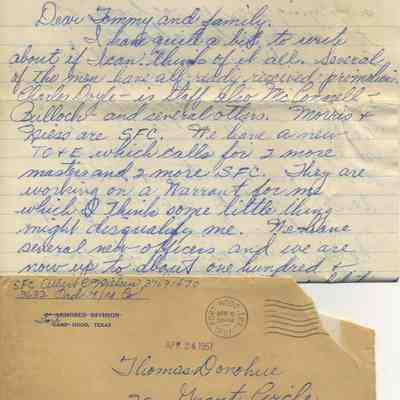 Dear Tommy and family.
I have quite a bit to write
about if I can think of it all. Several
of the men have all ready received promotions.
Charles Doyle - is staff also McConnell -
Bulloch - and several otters. Morris &
Hess are SFC. We have a new
TO+E which calls for 2 more
masters and 2 more SFC. They are
working on a Warrant for me
which I think some little thing
might disqualify me. We have
several new officers and we are
now up to about one hundred &
SFC Albert C
ARMORED DIVISION
CAMP HOOD, TEXAS
APR 24 1951
Thomas Donohue
20 Grant Circle